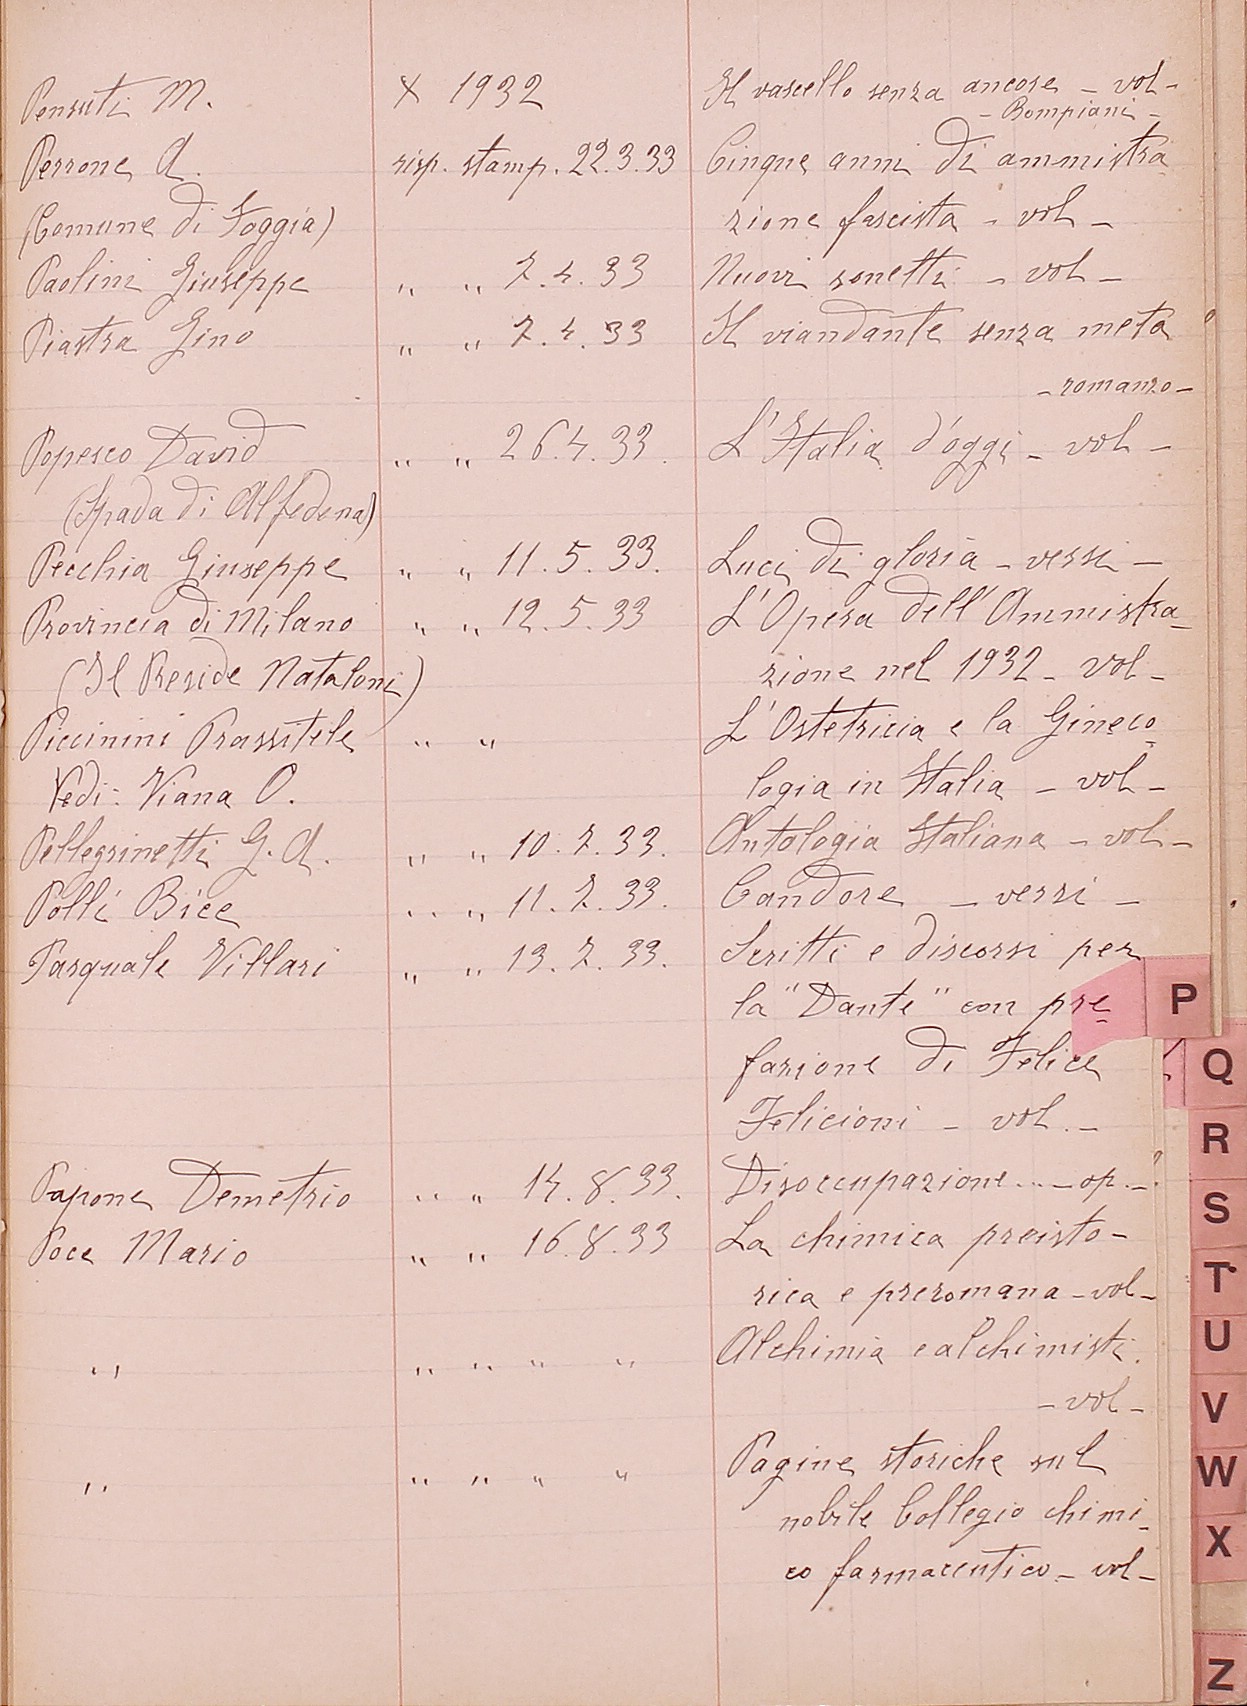 Pensuti M. X 1932 Il vascello senza ancore - vol -
- Bompiani -
Perrone A. risp. stamp. 22.3.33 Cinque anni di ammistra
(Comune di Foggia) zione fascista - vol -
Paolini Giuseppe " " 7.4.33 Nuovi sonetti - vol -
Piastra Gino " " 7.4.33 Il viandante senza meta
- romanzo -
Popesco David " " 26.4.33. L'Italia d'oggi - vol -
(Spada di Alfedena)
Pecchia Giuseppe " " 11.5.33. Luci di gloria - versi -
Provincia di Milano " " 12.5.33 L'Opera dell'Ammistra-
(Il Preside Nataloni) zione nel 1932 - vol -
Piccinini Prassitele " " L'Ostetricia e la Gineco-
Vedi: Viana O. logia in Italia - vol -
Pellegrinetti G. A. " " 10.7.33. Antologia Italiana - vol -
Polli Bice " " 11.7.33. Candore - versi -
Pasquale Villari " " 13.7.33. Scritti e discorsi per
la "Dante" con pre-
fazione di Felice
Felicioni - vol. -
Papone Demetrio " " 14.8.33. Disoccupazione... - op. -
Poce Mario " " 16.8.33 La chimica preisto-
rica e preromana - vol -
" " " " " Alchimia e alchimisti.
- vol -
" " " " " Pagine storiche sul
nobile Collegio chimi-
co farmaceutico - vol -
P
Q
R
S
T
U
V
W
X
Z